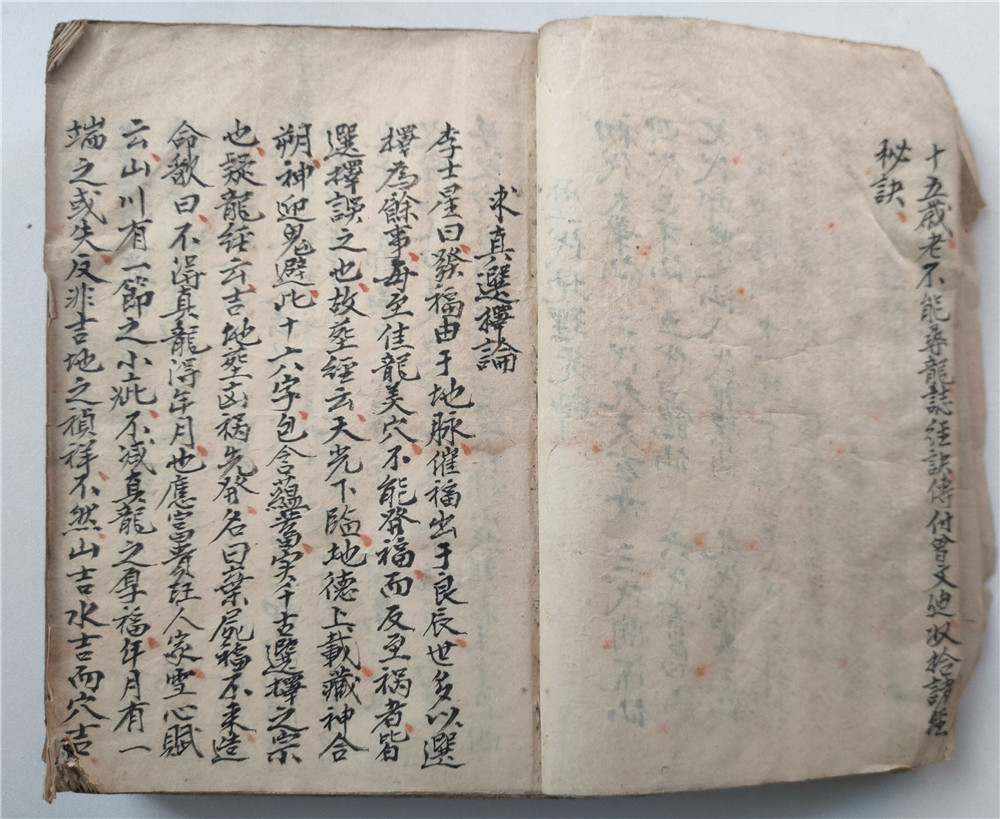 十五歳老不能尋龍誌經訣傳付曾文辿收拾諸
秘訣
求真選擇論
李士星曰發福由于地脉催福出于良辰世多以選
擇為餘事每至佳龍美穴不能發福而反至禍者皆
選擇誤之也故塟經云天光下臨地德上載藏神合
朔神迎鬼避此十六字包含蘊蓄实千古選擇之宗
也疑龍經云吉地塟凶祸先發名曰棄屍福不来造
命歌曰不得真龍得年月也應富貴旺人家雪心賦
云山川有一節之小疵不減真龍之厚福年月有一
端之或失反非吉地之禎祥不然山吉水吉而穴吉